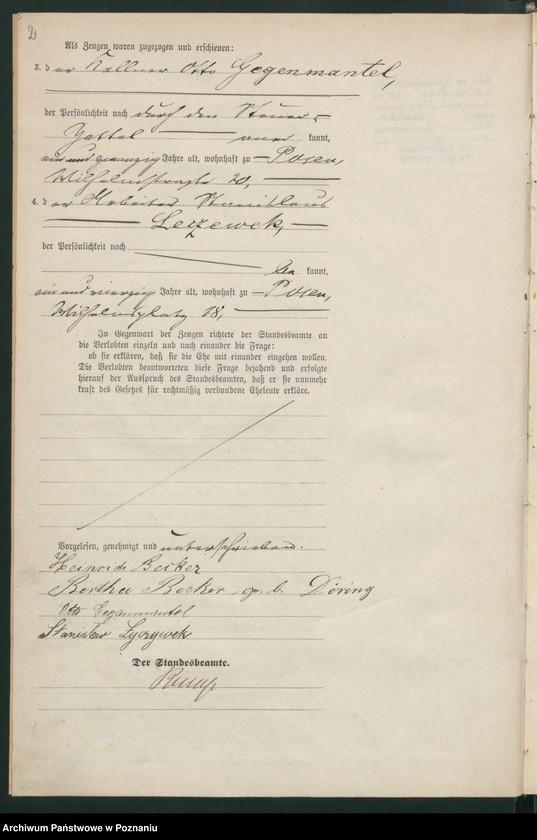 2
Als Zeugen waren zugezogen und erschienen:
3. der Kellner Otto Gegenmantel,
der Persönlichkeit nach durch den Steuer-
kannt,
ein und zwanzig Jahre alt, wohnhaft zu Posen,
Wilhelmstraße 20,
4. der Arbeiter Stanislaus
der Persönlichkeit nach
be kannt,
ein und vierzig Jahre alt, wohnhaft zu Posen,
Wilhelmsplatz 18,
In Gegenwart der Zeugen richtete der Standesbeamte an
die Verlobten einzeln und nach einander die Frage:
ob sie erklären, daß sie die Ehe mit einander eingehen wollen.
Die Verlobten beantworteten diese Frage bejahend und erfolgte
hierauf der Ausspruch des Standesbeamten, daß er sie nunmehr
kraft des Gesetzes für rechtmäßig verbundene Eheleute erkläre.
Vorgelesen, genehmigt und unterschrieben.
Heinrich Becker
Bertha Becker geb. Döring
Otto Gegenmantel
Stanisław
Der Standesbeamte.
Archiwum Państwowe w Poznaniu